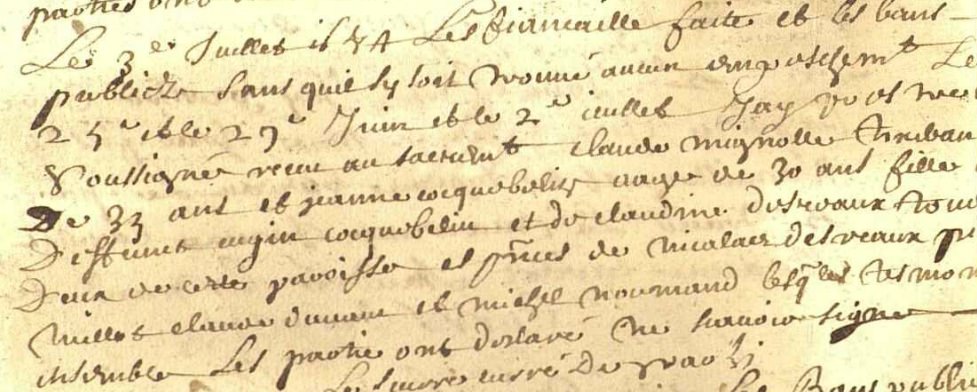 parties ont
Le 3e Juillet Les fiancaille faite et les bans
publiez sans quil sy soit trouué aucun empeschemt Le
25e et le 29e Juin et le 2e iuillet Jay
soussigné receu au sacremt claude mignolle
De 33 ans et jeanne cocquebelin aagé de 30 ans fille
Deffunct cocquebelin et de claudine desveaux tous
Deux de cette paroisse es pnces de nicolas desveaux
claude et michel normand lesqles tesmoi
ensemble Les partie ont declaré ne scauoir signe
curé De
Bans publi